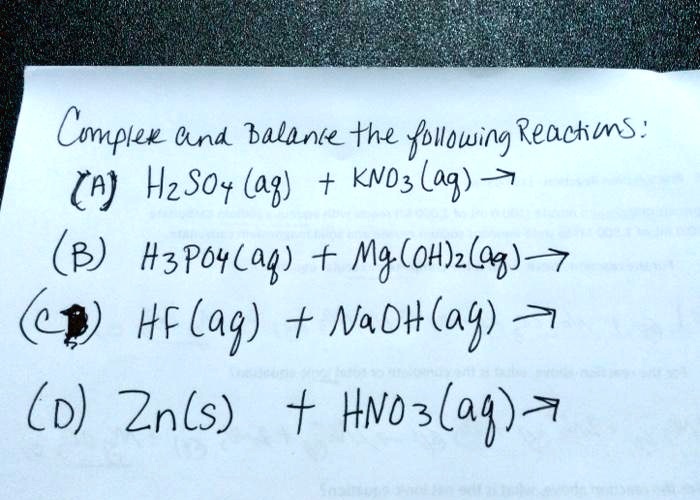 Complete and Balance the following Reactions:
(A) H2SO4 (aq) + KNO3 (aq) →
(B) H3PO4 (aq) + Mg(OH)2(aq) →
(C) HF (aq) + NaOH (aq) →
(D) Zn(s) + HNO3 (aq) →